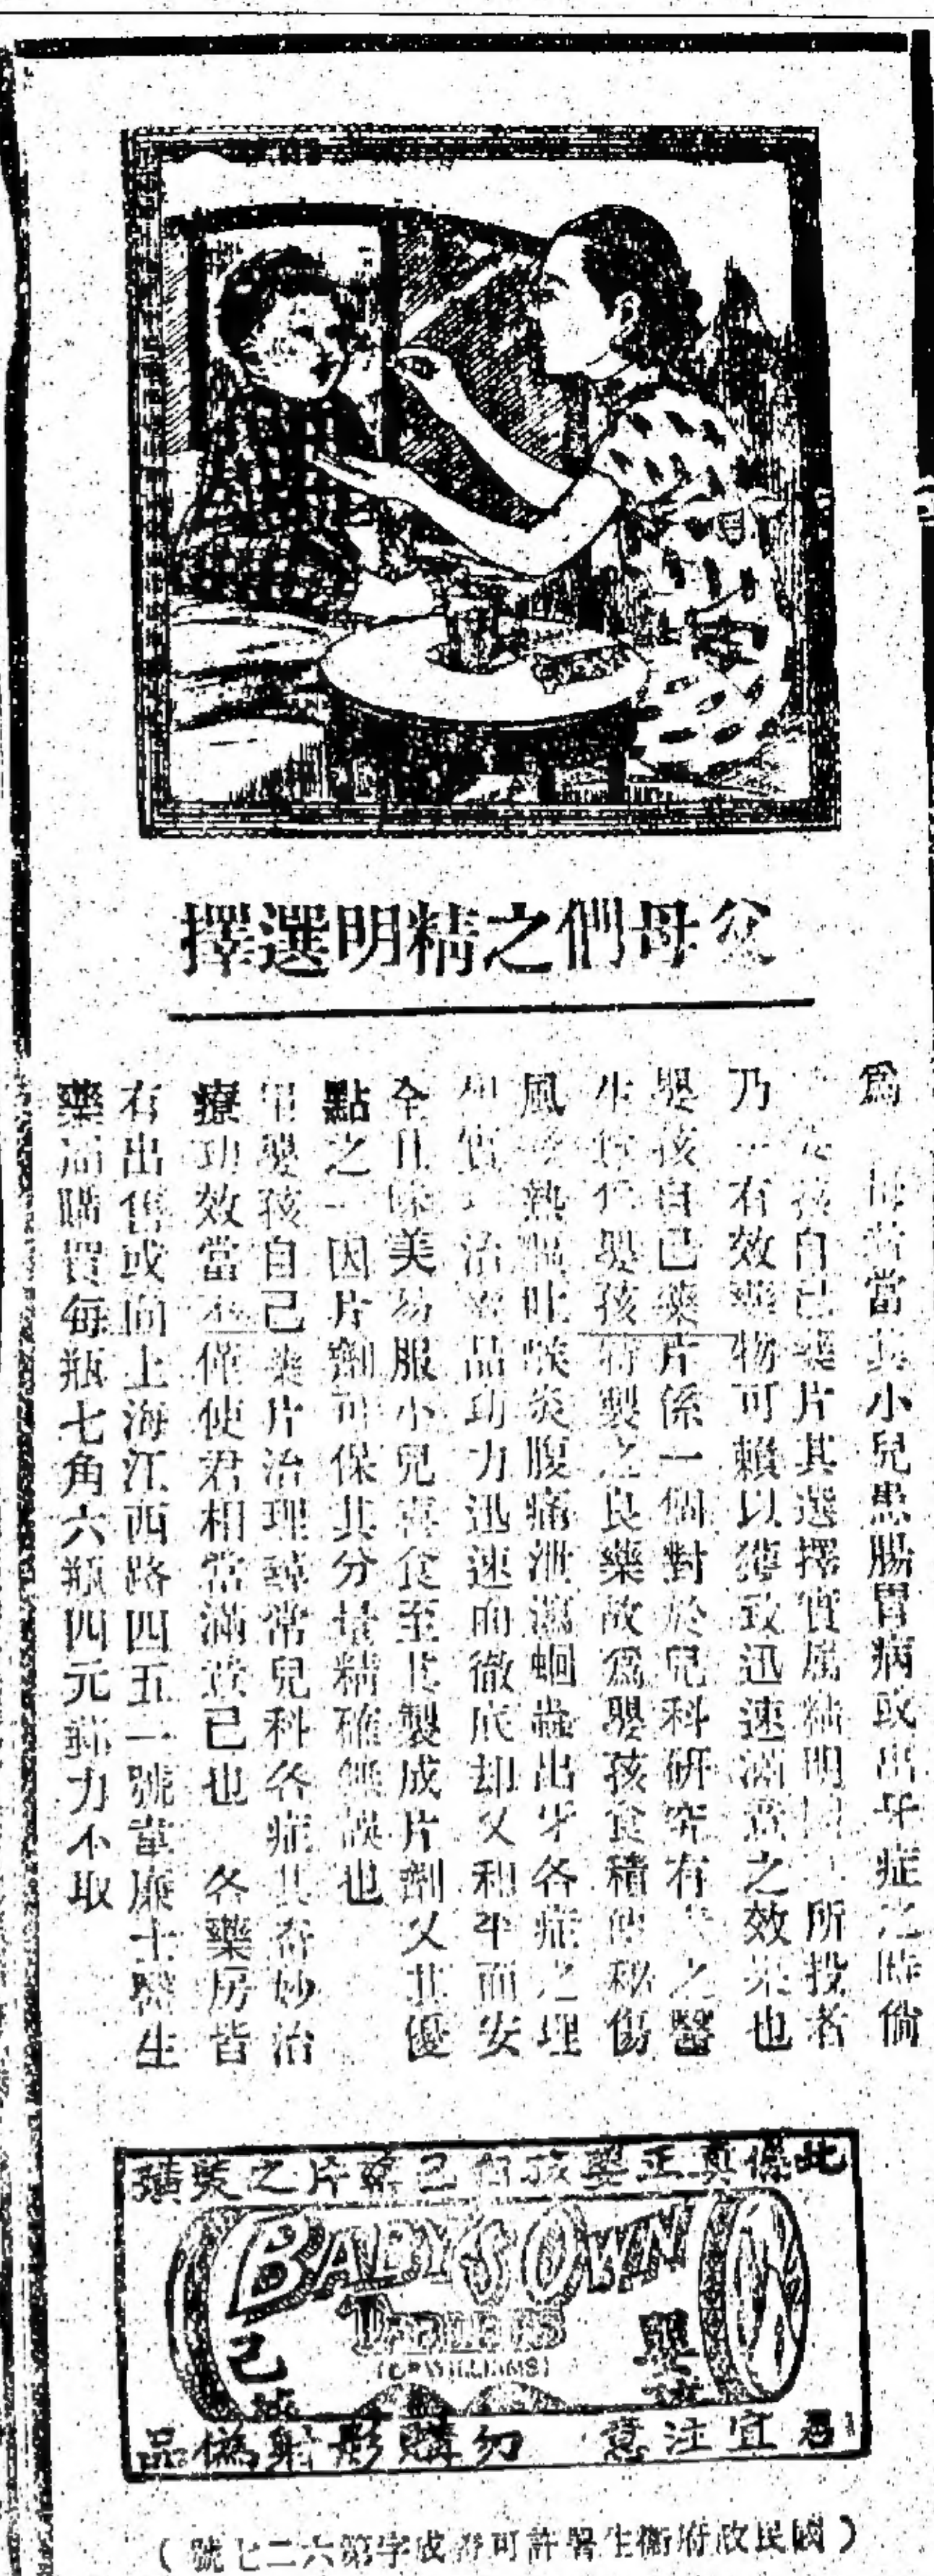 父母們之精明選擇
為 母 當其小兒患腸胃病或出牙症之時倘
孩自己藥片其選擇實屬精明因 所投者
乃 有效藥物可賴以獲致迅速滿意之效果也
嬰孩自己藥片係一個對於兒科研究有 之醫
生 嬰孩特製之良藥故為嬰孩食積便秘傷
風 熱 吐 痰炎腹痛泄瀉蛔蟲出牙各症之理
治 品功力迅速而徹底却又和平而安
全且味美易服小兒喜食至其製成片劑又其優
點之一因片劑可保其分量精確無誤也
用嬰孩自己藥片治理尋常兒科各症其奇妙治
療功效當不僅使君相當滿意已也 各藥房皆
有出售或向上海江西路四五一號韋廉士醫生
藥局購買每瓶七角六瓶四元郵力不取
此係真正嬰孩自己藥片之裝璜
BABY'S OWN
TABLETS
(DR WILLIAMS)
嬰孩
自己
君宜注意 勿購影射偽品
(國民政府衛生署許可證成字第六二七號)